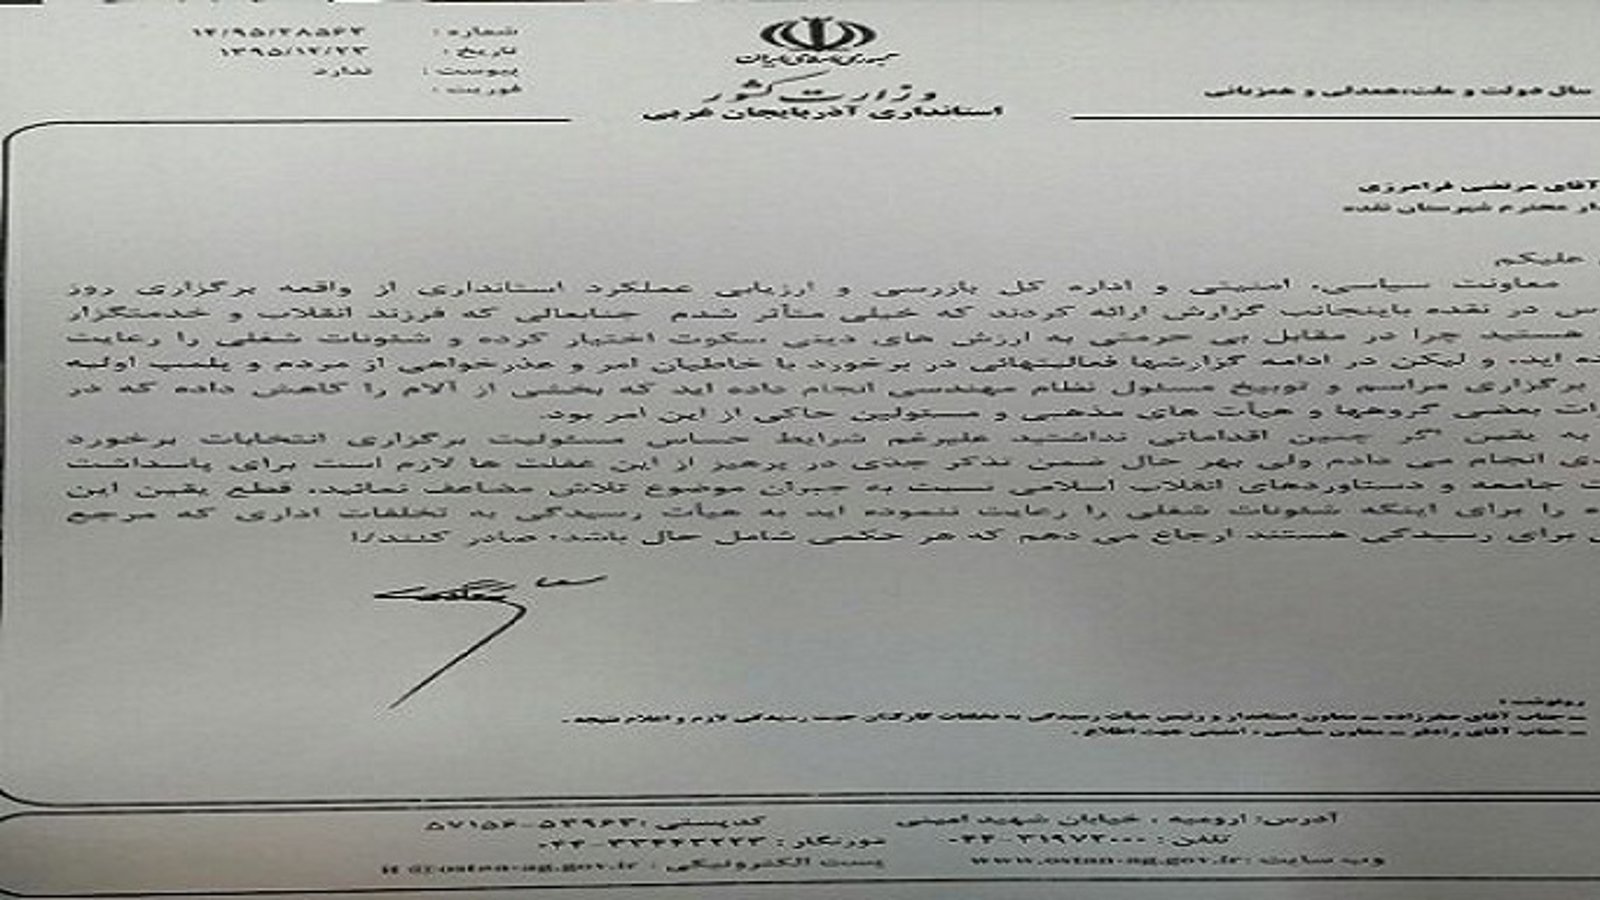 شماره : ۱۲/۹۵/۲۸۵۶۳
تاریخ : ۱۳۹۵/۱۲/۲۳
پیوست : ندارد
فوریت :
جمهوری اسلامی ایران
وزارت کشور
استانداری آذربایجان غربی
سال دولت و ملت،همدلی و همزبانی
آقای مرتضی فرامرزی
محترم شهرستان نقده
علیکم
معاونت سیاسی، امنیتی و اداره کل بازرسی و ارزیابی عملکرد استانداری از واقعه برگزاری روز
در نقده باینجانب گزارش ارائه کردند که خیلی متأثر شدم جنابعالی که فرزند انقلاب و خدمتگزار
هستید چرا در مقابل بی حرمتی به ارزش های دینی سکوت اختیار کرده و شئونات شغلی را رعایت
اید، و لیکن در ادامه گزارشها فعالیتهائی در برخورد با خاطیان امر و عذرخواهی از مردم و پلمپ اولیه
برگزاری مراسم و توبیخ مسئول نظام مهندسی انجام داده اید که بخشی از آلام را کاهش داده که در
بعضی گروهها و هیأت های مذهبی و مسئولین حاکی از این امر بود.
به یقین اگر چنین اقداماتی نداشتید علیرغم شرایط حساس مسئولیت برگزاری انتخابات برخورد
انجام می دادم ولی بهر حال ضمن تذکر جدی در پرهیز از این غفلت ها لازم است برای پاسداشت
جامعه و دستاوردهای انقلاب اسلامی نسبت به جبران موضوع تلاش مضاعف نمائید. قطع یقین این
را برای اینکه شئونات شغلی را رعایت ننموده اید به هیأت رسیدگی به تخلفات اداری که مرجع
برای رسیدگی هستند ارجاع می دهم که هر حکمی شامل حال باشد، صادر کنند/ا
رونوشت :
ـ جناب آقای صفرزاده ـ معاون استاندار و رئیس هیأت رسیدگی به تخلفات کارکنان جهت رسیدگی لازم و اعلام نتیجه .
ـ جناب آقای ـ معاون سیاسی ، امنیتی جهت اطلاع .
آدرس: ارومیه ، خیابان شهید امینی کدپستی: ۵۷۱۵۶-۵۳۹۶۳
تلفن : ۰۴۴-۳۱۹۷۲۰۰۰ دورنگار : ۰۴۴-۳۳۴۴۳۳۳۳
وب سایت : www.ostan-ag.gov.ir پست الکترونیکی :